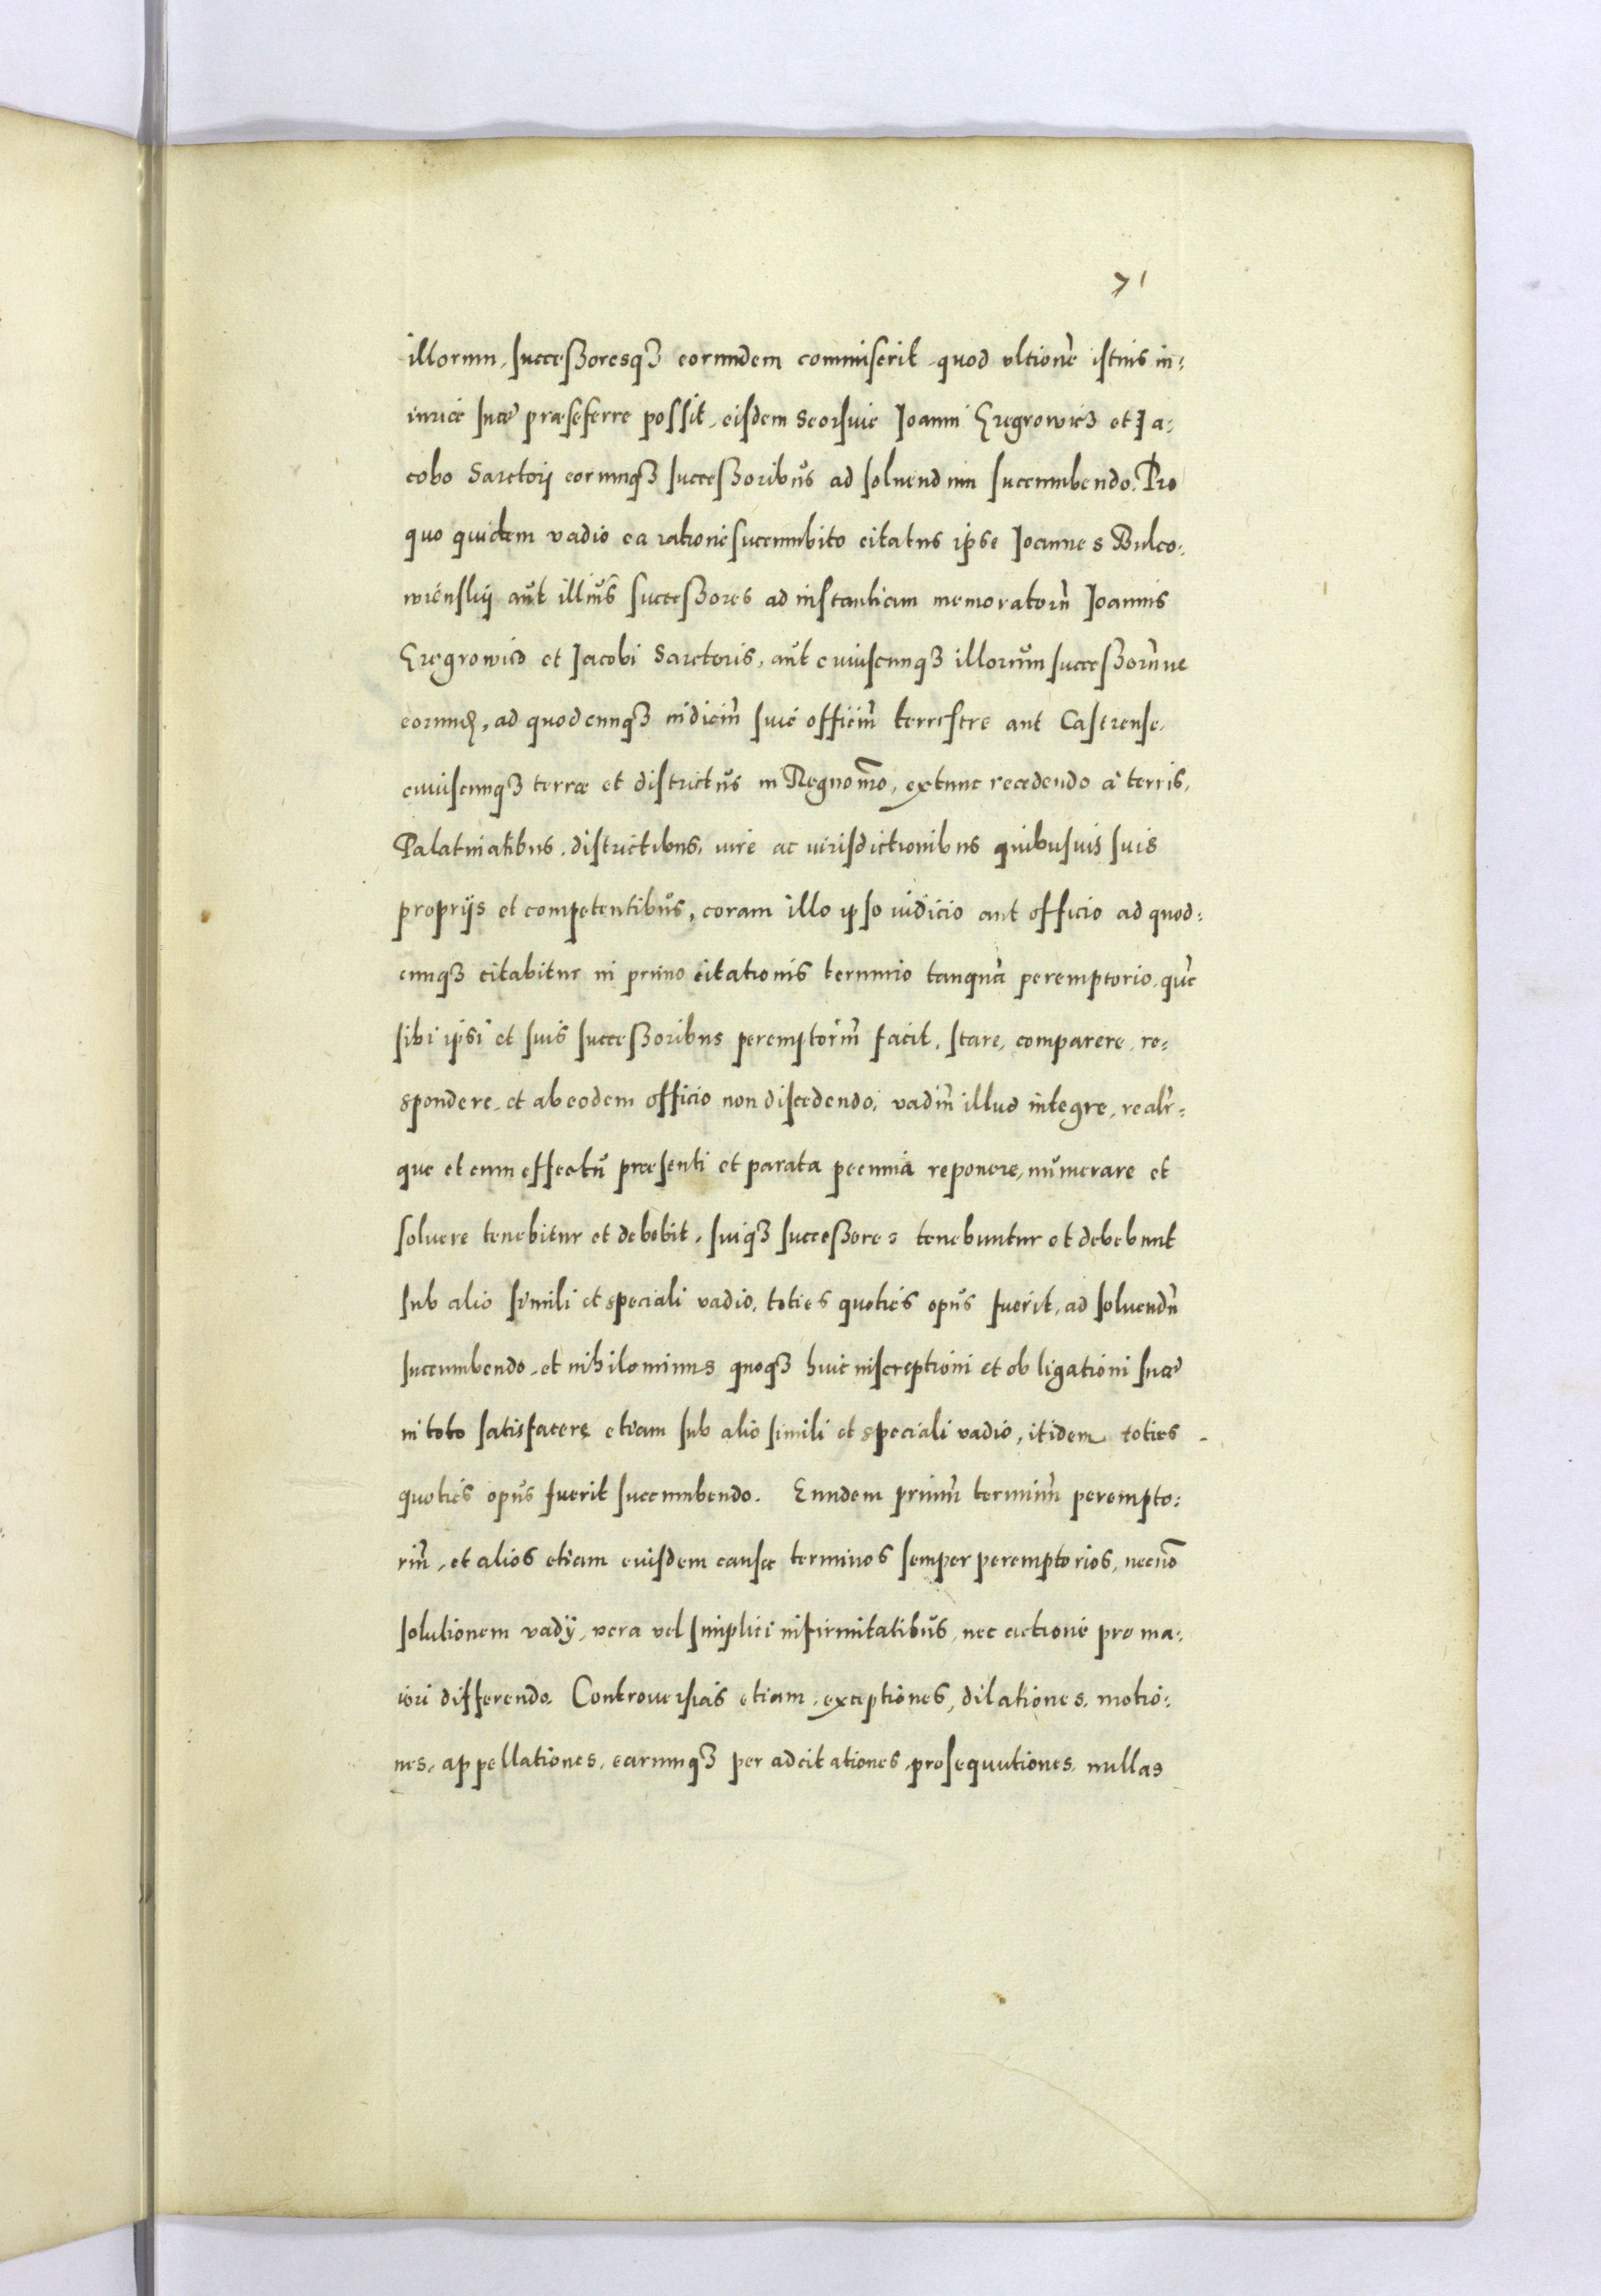 71
illorum, successoresq3 eorundem commiserit, quod vltione͂ istius in=
iuriæ suæ præseferre possit, eisdem seorsiue Joanni Gregrowicz et Ja=
cobo Sarctorj eorumq3 successoribus ad soluendum succumbendo. Pro
quo quidem vadio ea ratione succumbito citatus ipse Joannes Bulco=
wienskij aut illius successores ad instantiam memoratorũ Joannis
Gregrowicz et Jacobi Sarctoris, aut cuiuscunq3 illorum successorũue
eorund, ad quodcunq3 iudiciũ siue officiũ terrestre aut Castrense,
cuiuscunq3 terræ et districtus in Regno nr̃o, extunc recedendo à terris,
Palatinatibus, districtibus, iure ac iurisdictionibus quibusuis suis
proprijs et competentibus, coram illo ipso iudicio aut officio ad quod=
cunq3 citabitur in primo citationis termino tanquã peremptorio, quẽ
sibi ipsi et suis successoribus peremptoriũ facit, stare, comparere, re=
spondere, et ab eodem officio non discedendo, vadiũ illud integre, realr̃=
que et cum effectu præsenti et parata pecunia reponere, numerare et
soluere tenebitur et debebit, suiq3 successores tenebuntur et debebunt
sub alio simili et speciali vadio, toties quoties opus fuerit, ad soluendũ
succumbendo, et nihilominus quoq3 huic inscriptioni et obligationi suæ
in toto satisfacere etiam sub alio simili et speciali vadio, itidem toties
quoties opus fuerit succumbendo. Eundem primũ terminũ perempto=
riũ, et alios etiam eiusdem causæ terminos semper peremptorios, necnõ
solutionem vadij, vera vel simplici infirmitatibus, nec actione pro ma=
iori differendo. Controuersias etiam, exceptiones, dilationes, motio=
nes, appellationes, earumq3 per adcitationes, prosequutiones, nullas